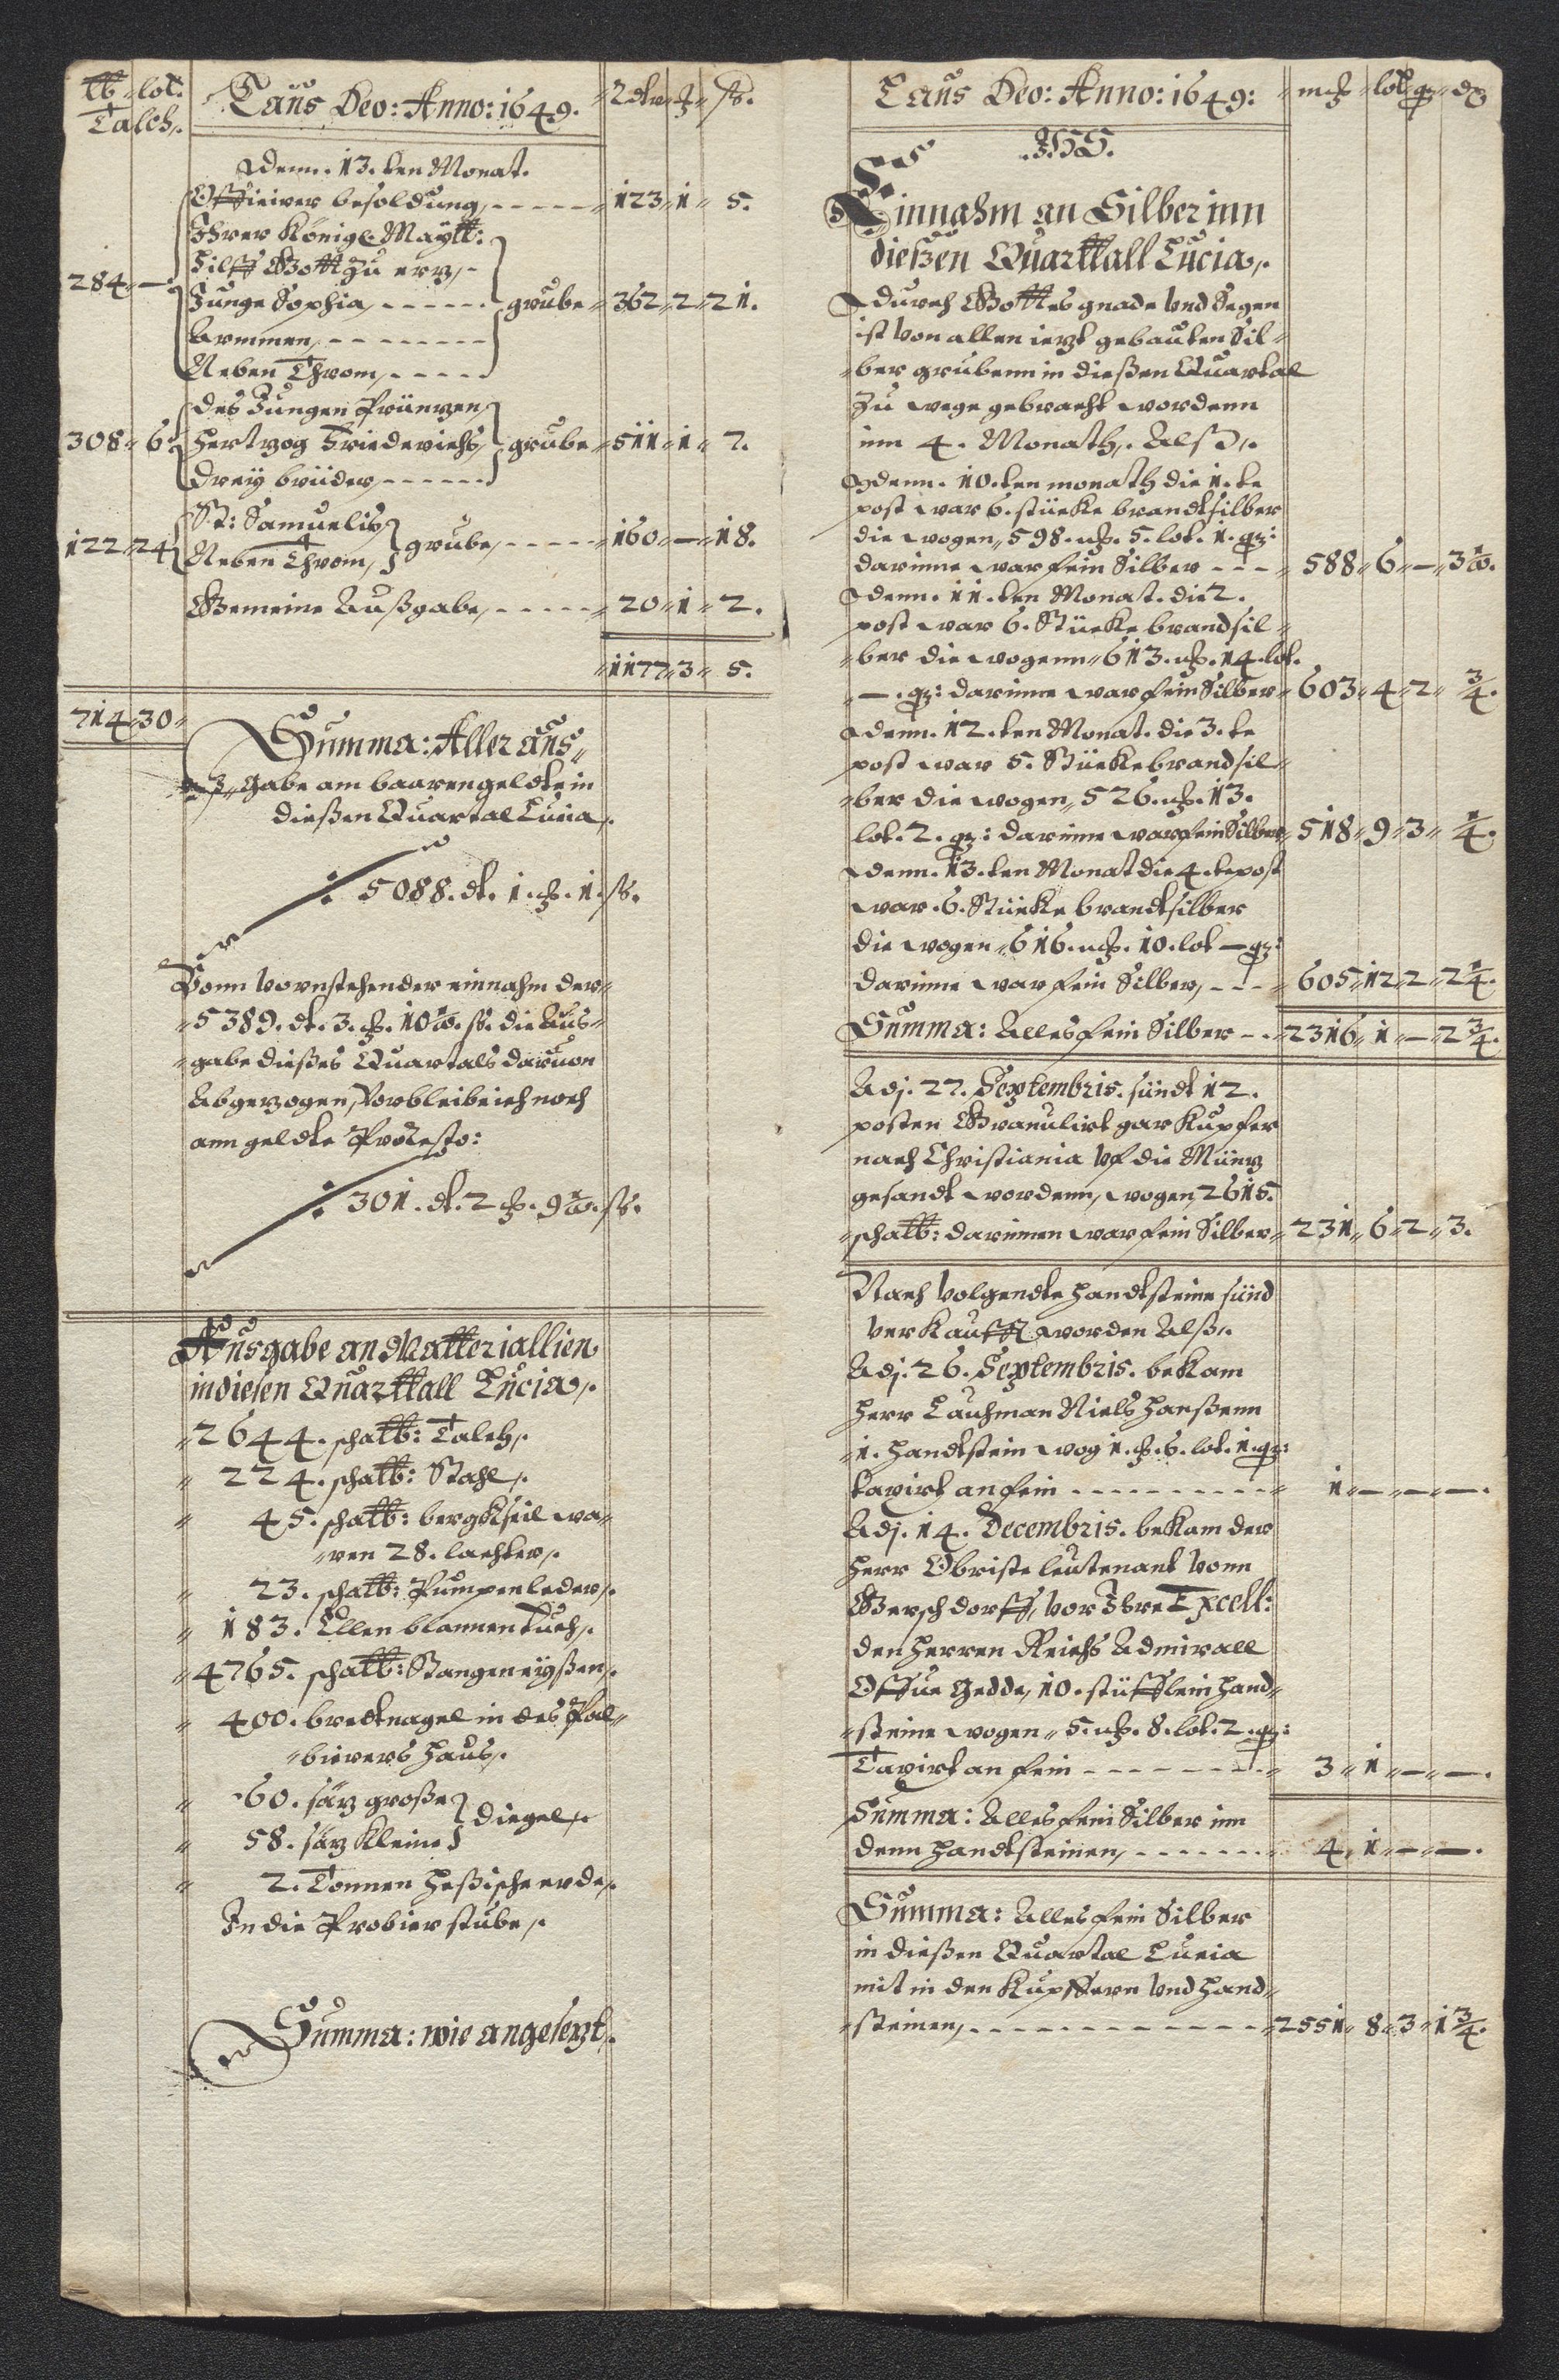 ℔ lot. Laus Deo: Anno: 1649. Rdlr. ß.
Talch.
denn. 13. ten Monat.
Officirer besoldung, 123 1 5.
Ihrer Königl. Maytt:
Hilff Gott Zu ertz,
284 — Junge Sophia, grube 362 2 21.
Armmen,
Neben Throm,
des Jungen Printzen
308 6 Hertzog Friederichs, grube 511 1 7.
Dreÿ brüder,
St: Samuelis
122 24 Neben Throm, grube, 160 — 18.
Gemeine Außgabe, 20 1 2.
1177 3 5.
714 30
Summa: Aller aus-
gabe am baarengeldte in
dießen Quartal Lucia.
5088. dl. 1. 1. ß.
Vonn vornstehender einnahm der
5389. dl. 3. 10½. ß. die Aus-
gabe dießes Quartals daruon
Abgezogen, Vorbleibe ich noch
ann geldte Pro Resto:
301. dl. 2. 9½. ß.
Ausgabe an Matteriallien
in diesen Quarttall Lucia.
2644. schalb: Talch.
224. schalb: Stahl.
45. schalb: bergkseil wa-
ren 28. lachter.
23. schalb: Pumpenleder.
183. Ellen blannentuch.
4765. schalb: Stangeneÿßen.
400. bredtnagel in des Bal-
bierers Haus.
60. sätz große
58. sätz kleine } diegel.
2. Tonnen Heßische erde.
In die Probier stube.
Summa: wie angesetzt.
Laus Deo: Anno: 1649: lot
JHS.
Einnahm an Silber inn
dießen Quarttall Lucia.
durch Gottes gnade vnd Segen
ist von allen ietzt gebauten Sil-
ber grubenn in dießen Quartal
Zu wege gebracht wordenn
inn 4. Monath. Alß.
denn. 10. ten monath die 1. te
post war 6. stücke brandtsilber
die wogen, 598. 5. lot. 1.
darinne war fein Silber 588 6 — 3½.
denn. 11. ten Monat. die 2.
post war 6. Stücke brandsil-
ber die wogenn 613. 14. lot.
—. darinne war fein Silber 603 4 2 ¾.
denn. 12. ten Monat. die 3. te
post war 5. Stücke brandsil-
ber die wogen, 526. 13.
lot. 2. darinne war fein Silber 518 9 3 ¼.
denn. 13. ten Monat die 4. te post
war. 6. Stücke brandtsilber
die wogen 616. 10. lot —
darinne war fein Silber, 605 12 2 2¼.
Summa: Alles fein Silber 2316 1 — 2¾.
Adj. 27. Septembris. sindt 12.
posten Granulirt gar Kupfer
nach Christiania vf die Müntz
gesandt wordenn, wogen, 2615.
schalb: darinnen war fein Silber 231 6 2 3.
Nach volgendte Handtsteine sind
verkaufft worden Alß.
Adj. 26. Septembris. bekam
Herr Lauhman Niels Hanßenn
1. Handtstein wog 1. 6. lot. 1.
taxirt an fein 1 — — —.
Adj. 14. Decembris. bekam der
Herr Obriste leutenant vonn
Gerschdorff, vor Ihre Excell:
den Herren Reichs Admirall
Offue Gedde, 10. stüfflein Hand-
steine wogen 5. 8. lot. 2.
Taxirt an fein 3 1 — —.
Summa: Alles fein Silber inn
denn Handtsteinen, 4 1 — —.
Summa: Alles fein Silber
in dießen Quartal Lucia
mit in den Kupffern vnd Hand-
steinen, 2551 8 3 1¾.